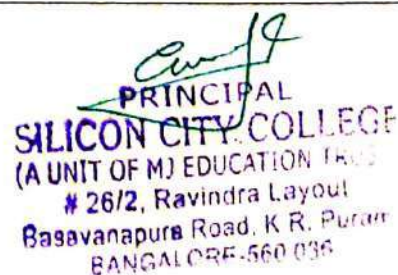 PRINCIPAL
SILICON CITY COLLEGE
(A UNIT OF MJ EDUCATION
# 26/2, Ravindra Layout
Basavanapura Road, K R. Puram
BANGALORE-560 036